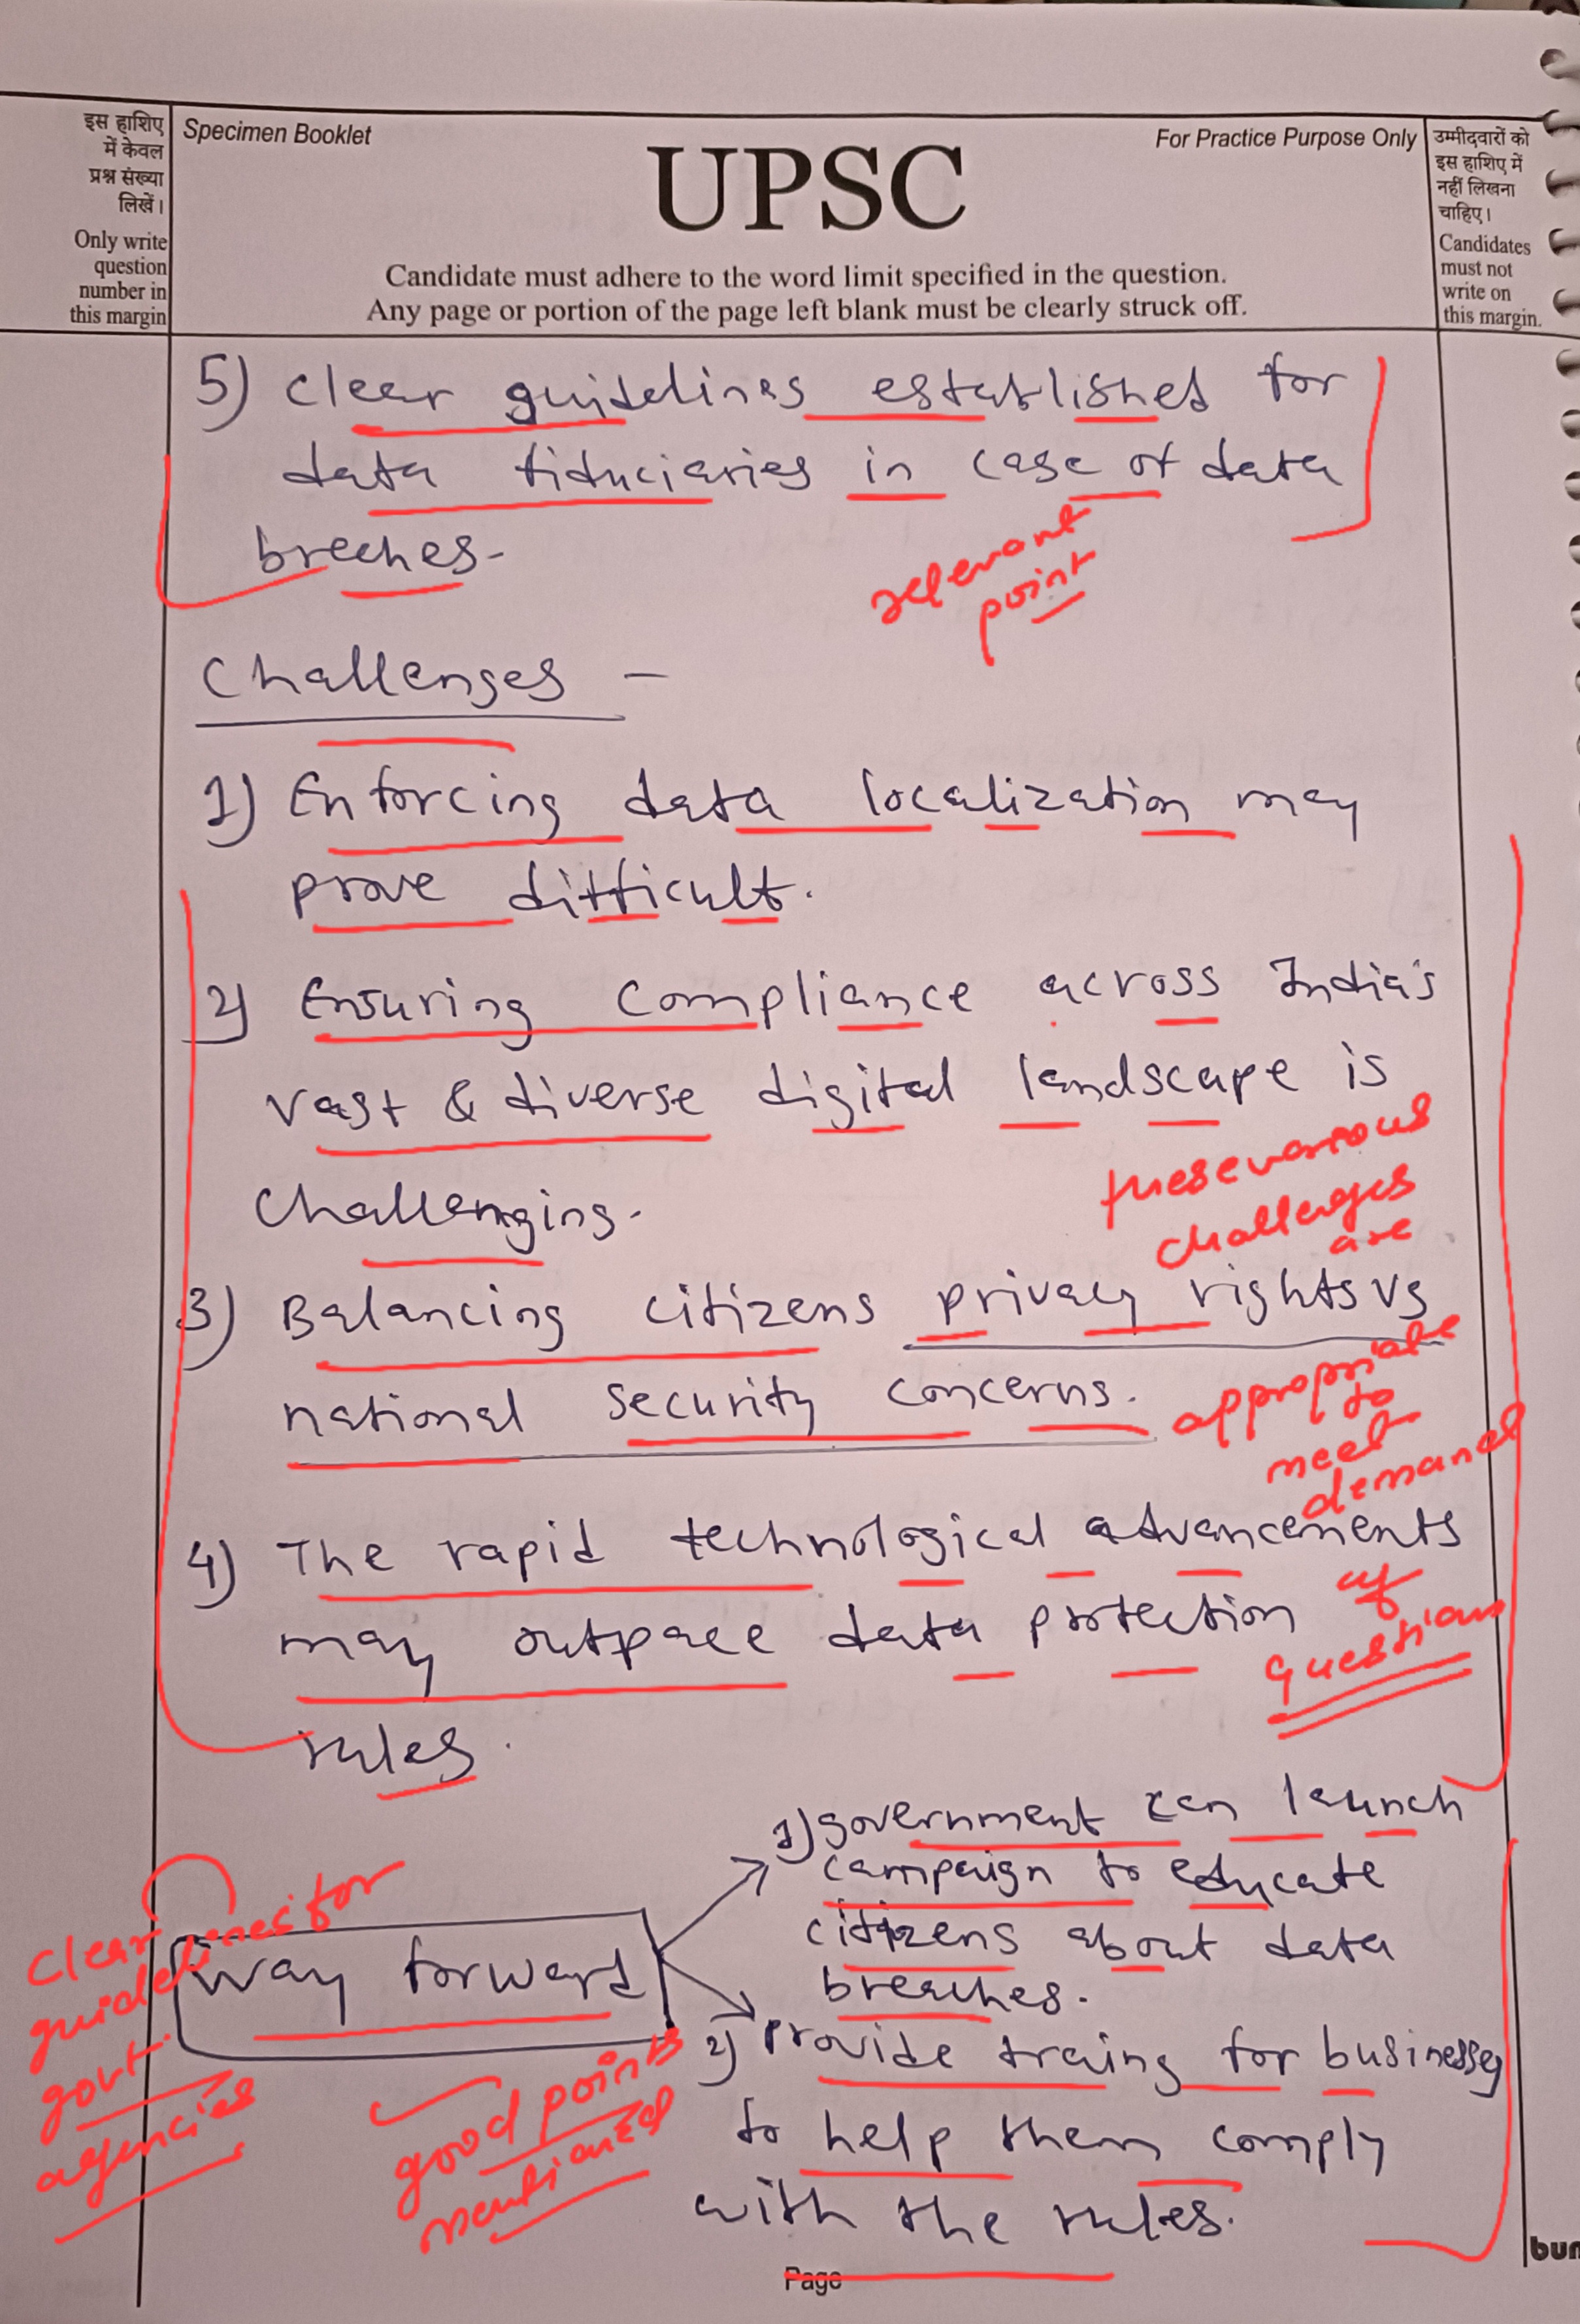 इस हाशिए
में केवल
प्रश्न संख्या
लिखें।
Only write
question
number in
this margin
Specimen Booklet
UPSC
For Practice Purpose Only
Candidate must adhere to the word limit specified in the question.
Any page or portion of the page left blank must be clearly struck off.
उम्मीदवारों को
इस हाशिए में
नहीं लिखना
चाहिए।
Candidates
must not
write on
this margin.
5) Clear guidelines established for
data fiduciaries in case of data
breches.
relevant
point
Challenges -
1) Enforcing data localization may
prove difficult.
2) Ensuring compliance across India's
vast & diverse digital landscape is
challenging.
these various
challenges
are
appropriate
to
meet
demand
of
question
3) Balancing citizens privacy rights vs
national security concerns.
4) The rapid technological advancements
may outpace data protection
rules.
Way forward
1) government can launch
campaign to educate
citizens about data
breaches.
2) Provide traing for businesses
to help them comply
with the rules.
clear
guidelines for
govt.
agencies
good points
mentioned
Page
bun